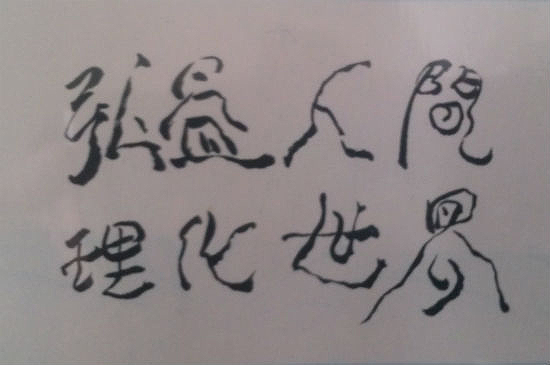 弘益人間
理化世界